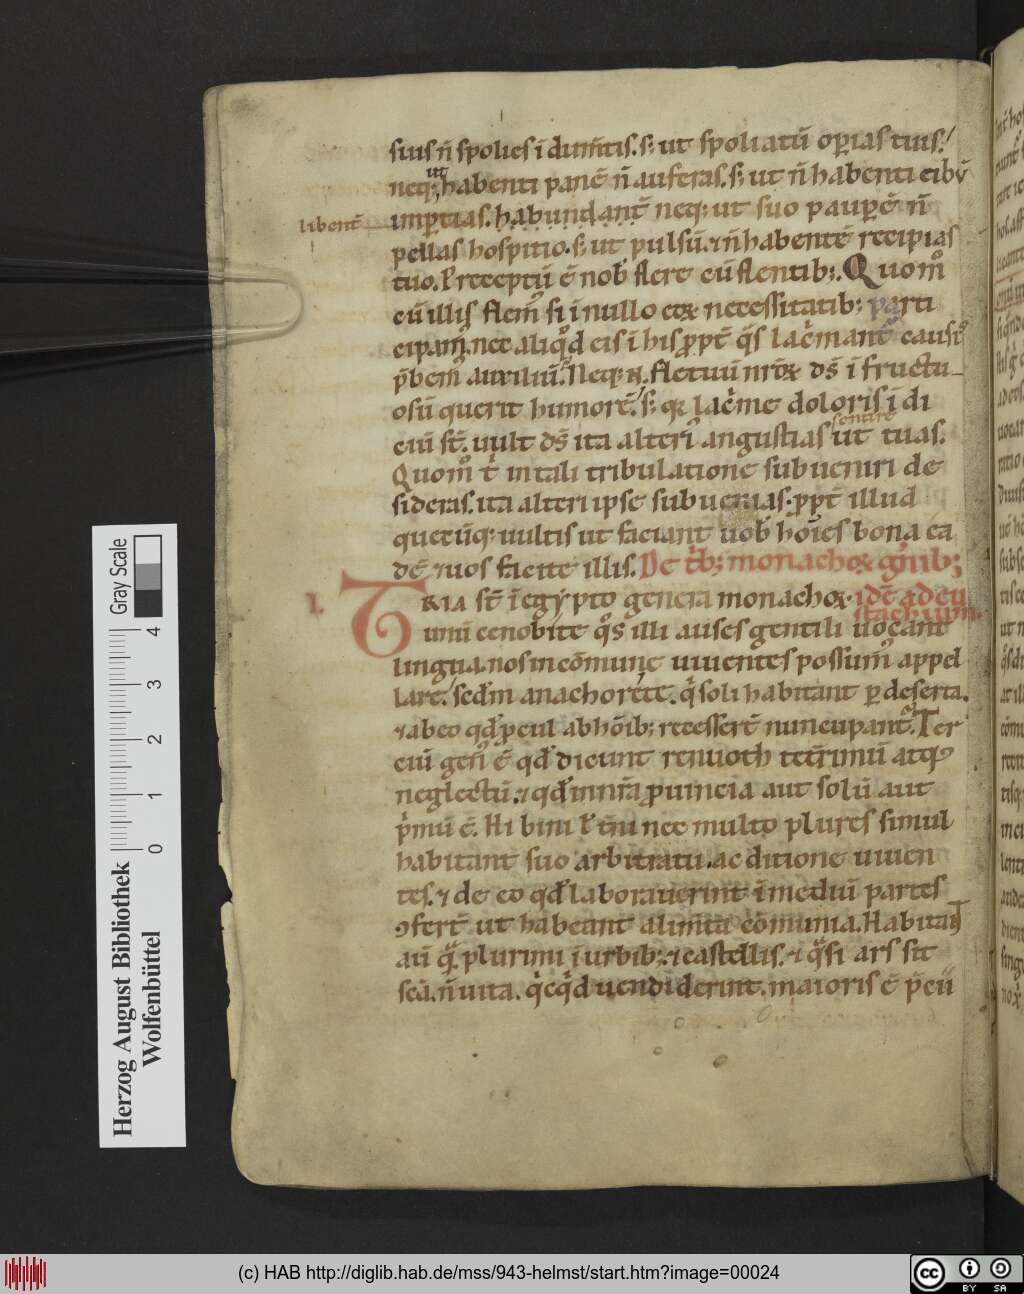 suis n̄ spolies ī dum̄tis. s; ut spoliatū opias tuis.
neq; habenti panē n̄ auferas. s; ut n̄ habenti cibū
ut
libent̄
imptias. habundant̄ neq; ut suo paupē n̄
pellas hospitio. s; ut pulsū. ⁊ n̄ habentē recipias
tuo. P̄receptū ē nob flere cū flentib;. Quom̊
cū illis flem̄ si ī nullo eoꝝ necessitatib; parti
cipam̄. nec aliq̊d eis ī his ꝓpt̄ q̊s lac̄mant̄ causis
p̄bem̄ auxiliū. Neq; n̄. fletuū nr̄oꝝ ds̄ ī fructu
osū querit humorē. s; qꝛ lac̄me doloris īdi
ciū st̄. uult ds̄ ita alteri angustias ut tuas.
sentire
Quom̊ t̄ in tali tribulatione subueniri de
sideras. ita alteri ipse subuenias. ꝓpt̄ illud
quecūq; uultis ut faciant uob hoīes bona ea
dē ⁊ uos facite illis. De t̄b; monachoꝝ gn̄ib;
I.
TRIA st̄ ī egypto genera monachoꝝ. idē ad eu
stachium.
unū cenobite q̊s illi auses gentili uocant
lingua. nos in cōmune uiuentes possum̄ appel
lare. sed̄m anachorete. q̇ soli habitant p deserta.
⁊ ab eo qd̄ ꝓcul ab hoīb; recesser̄t nuncupant̄. Ter
ciū gen̄ ē qd̄ dicunt remuoth tet̄rimū atq;
neglectū. ⁊ qd̄ in nr̄a ꝓuincia aut solū aut
p̄mū ē. Hi bini ł t̄ni nec multo plures simul
habitant suo arbitratu. ac ditione uiuen
tes. ⁊ de eo qd̄ laborauerint ī mediū partes
ꝯfert̄ ut habeant alim̄ta cōmunia. Habitant
aū q̄. plurimi ī urbib;. ⁊ castellis. ⁊ q̄si ars sit
scā. n̄ uita. q̇cq̇d uendiderint. maioris ē p̄cii
Gray Scale
0 1 2 3 4
Herzog August Bibliothek
Wolfenbüttel
(c) HAB http://diglib.hab.de/mss/943-helmst/start.htm?image=00024
cc BY SA